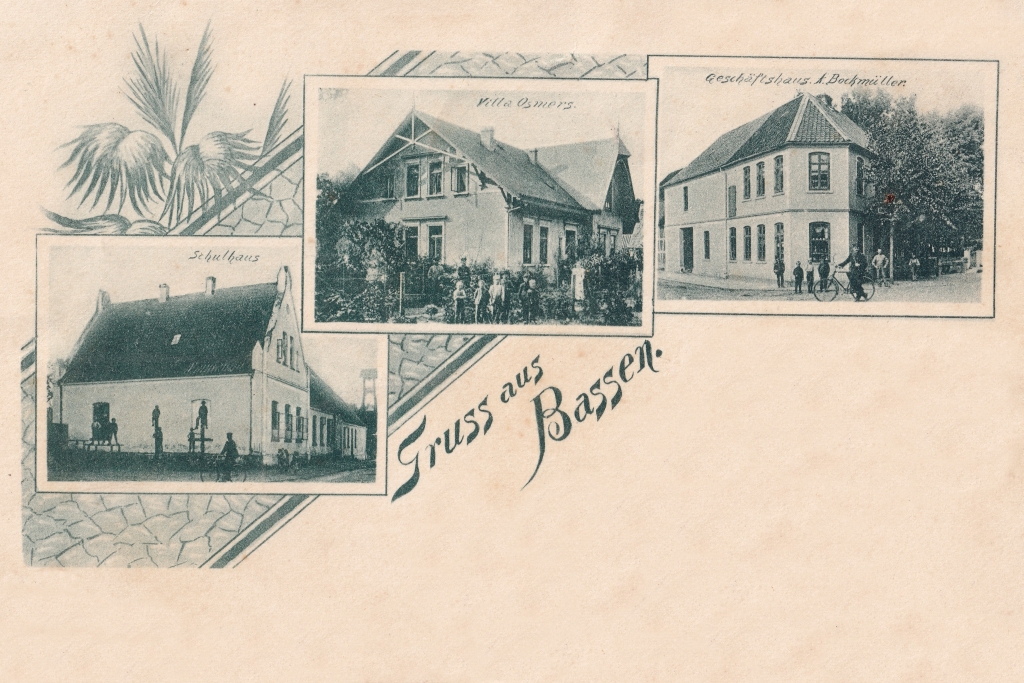 Geschäftshaus. A. Bockmüller.
Villa Osmers.
Schulhaus
Gruss aus
Bassen.